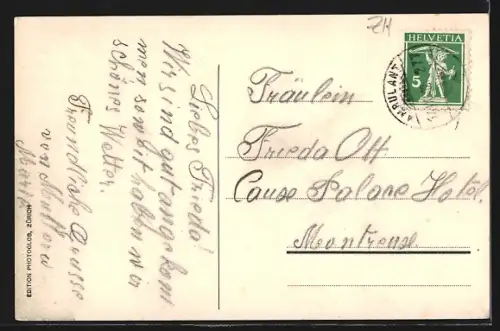 ZH
HELVETIA
5
AMBULANT
Fräulein
Frieda Ott
Caux Palace Hotel.
Montreux.
Liebes Frieda!
Wir sind gut angekom
men soweit haben wir
schönes Wetter.
Freundliche Grüsse
von Mutter u
Marie
EDITION PHOTOGLOB, ZÜRICH